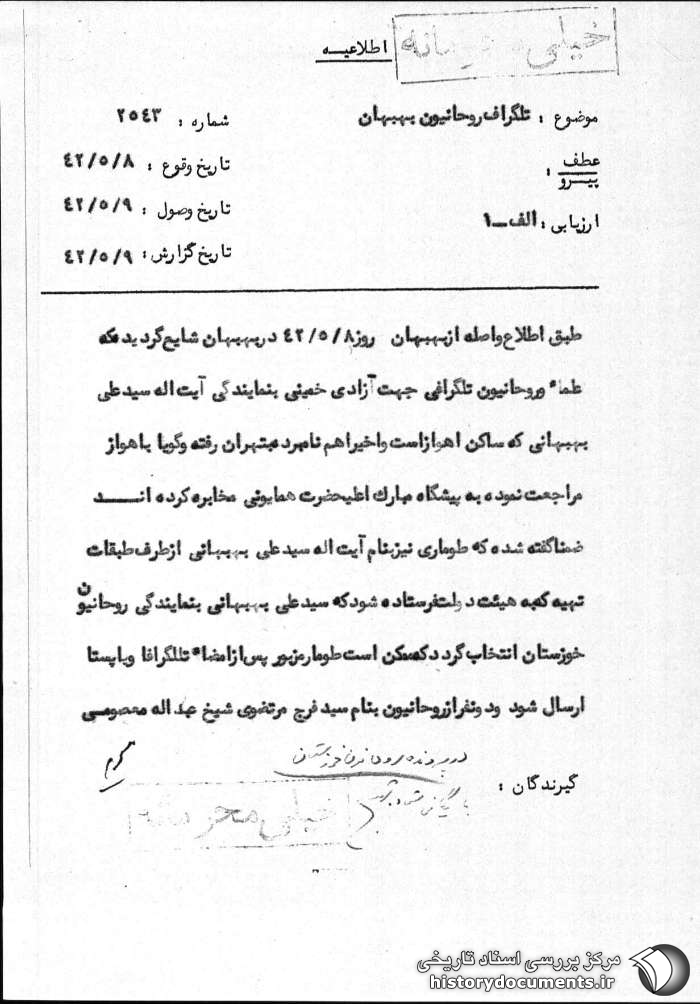 خیلی محرمانه
اطلاعیــه
موضوع : تلگراف روحانیون بهبهان
شماره : ۲۵٤۳
عطف
پیرو :
تاریخ وقوع : ٤۲/۵/۸
تاریخ وصول : ٤۲/۵/۹
ارزیابی : الف ـ ۱
تاریخ گزارش : ٤۲/۵/۹
طبق اطلاع واصله از بهبهان روز ٤۲/۵/۸ در بهبهان شایع گردیده که
علماء و روحانیون تلگرافی جهت آزادی خمینی بنمایندگی آیت اله سید علی
بهبهانی که ساکن اهواز است و اخیرا هم نامبرده بتهران رفته و گویا باهواز
مراجعت نموده به پیشگاه مبارك اعلیحضرت همایونی مخابره کرده انــد
ضمنا گفته شده که طوماری نیز بنام آیت اله سید علی بهبهانی از طرف طبقات
تهیه که به هیئت دولت فرستاده شود که سید علی بهبهانی بنمایندگی روحانیون
خوزستان انتخاب گردد که ممکن است طومار مزبور پس از امضاء تلگرافا و یا پستا
ارسال شود و دو نفر از روحانیون بنام سید فرج مرتضوی شیخ عبداله معصومــی
در پرونده روحانیون خوزستان
گیرندگان :
بایگانی شود
خیلی محرمانه
مرکز بررسی اسناد تاریخی
historydocuments.ir